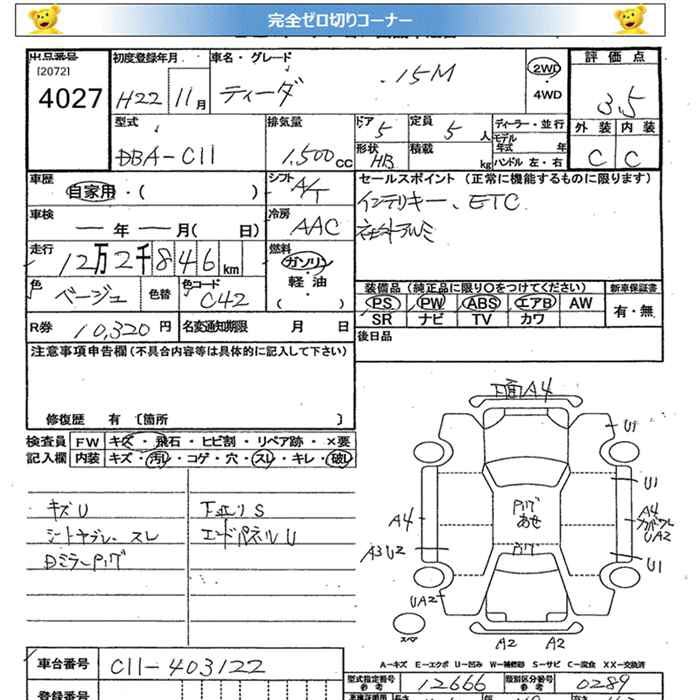 完全ゼロ切りコーナー
出品番号 初度登録年月 車名・グレード 評価点
[2072]
4027 H22 11月 ティーダ .15M 2WD 3.5
4WD
外装 内装
C C
型式 排気量 ドア 定員 ディーラー・並行
DBA-C11 1,500cc 5 5人 モデル年式 年
形状 積載 ハンドル 左・右
HB kg
車歴 シフト セールスポイント (正常に機能するものに限ります)
自家用・( ) A/T インテリキー、ETC
車検 冷房
ー年ー月( 日) AAC
走行 燃料
12万2千846km ガソリン・
軽油・
( )
色 色替 色コード 装備品 (純正品に限り○をつけてください) 新車保証書
ベージュ C42 PS PW ABS エアB AW 有・無
SR ナビ TV カワ
R券 10,320円 名変通知期限 月 日 後日品
注意事項申告欄(不具合内容等は具体的に記入して下さい)
修復歴 有 〔箇所 〕
検査員 FW キズ・飛石・ヒビ割・リペア跡・×要
記入欄 内装 キズ・汚レ・コゲ・穴・スレ・キレ・破レ
キズU 下廻りS
シートヤブレ、スレ エンドパネルU
下面A4
U1
U1
A4
A4
UA2
A3U2
U1
UA2
スペア
A2 A2
A-キズ E-エクボ U-凹み W-補修跡 S-サビ C-腐食 XX-交換済
車台番号 C11-403122
型式指定番号 参考 12666 類別区分番号 参考 0289
登録番号